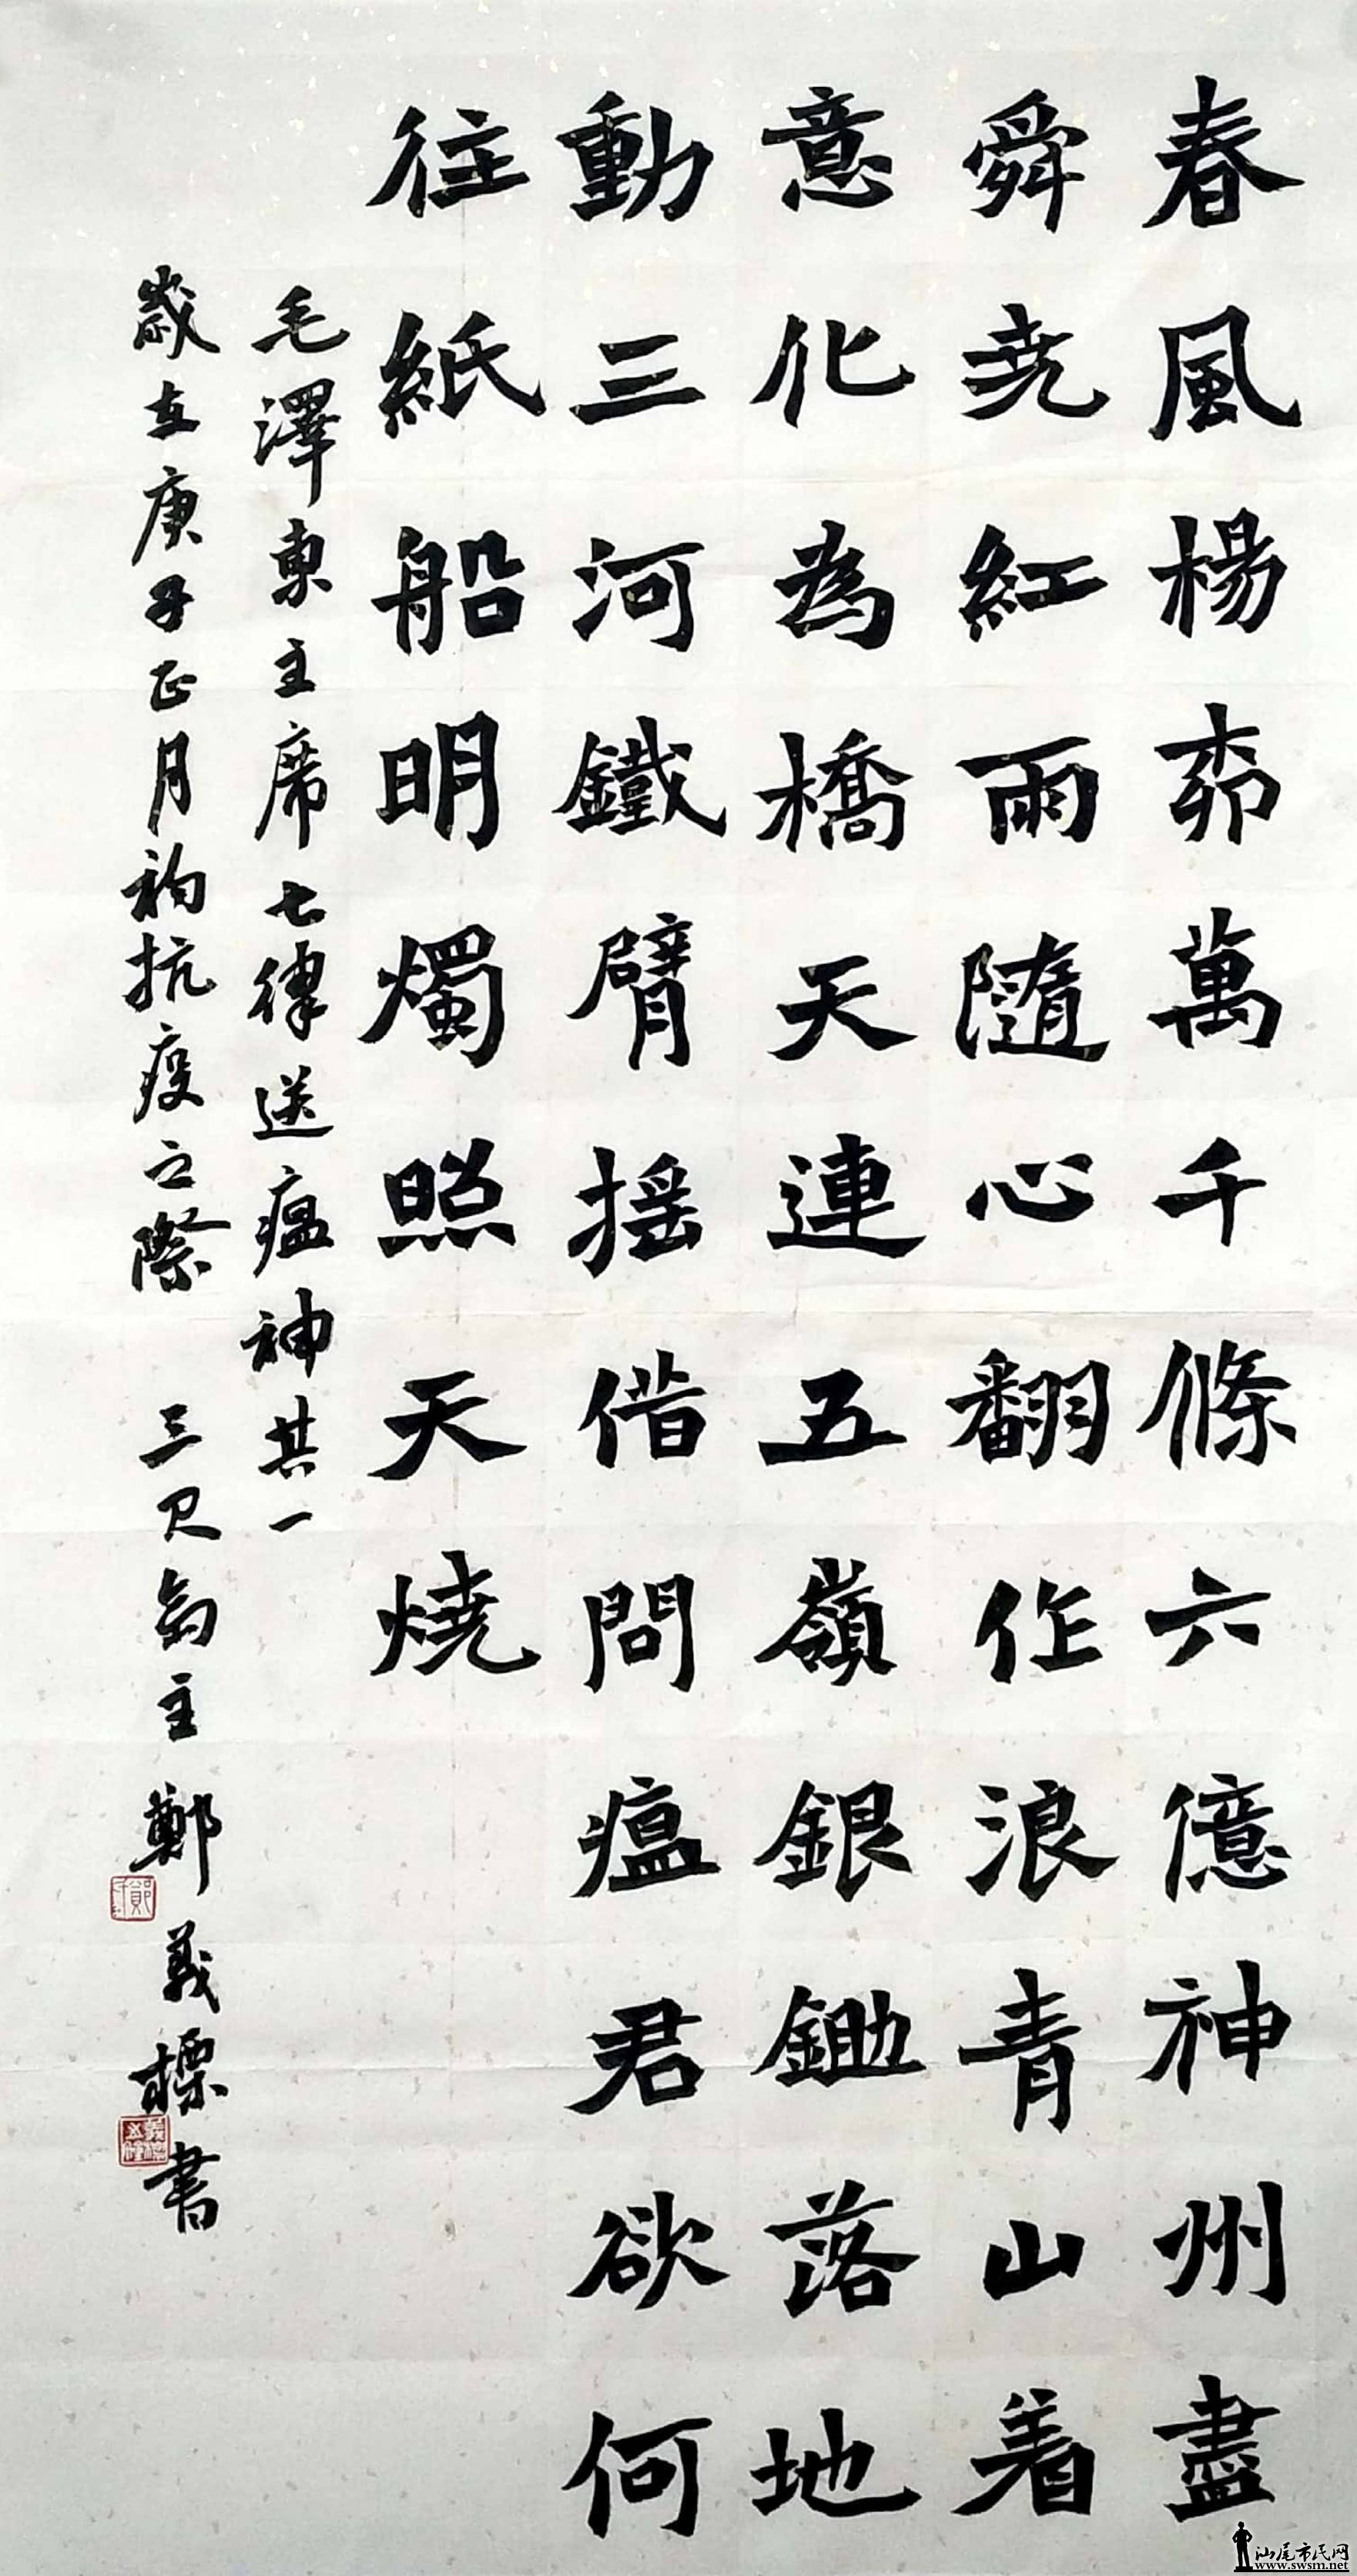 春風楊桺萬千條六億神州盡
舜尭紅雨隨心翻作浪青山着
意化為橋天連五嶺銀鋤落地
動三河鐵臂搖借問瘟君欲何
往紙船明燭照天燒
毛澤東主席七律送瘟神其一
歲在庚子正月初抗疫之際 三尺劍主鄭義標書
汕尾市民网
www.swsm.net